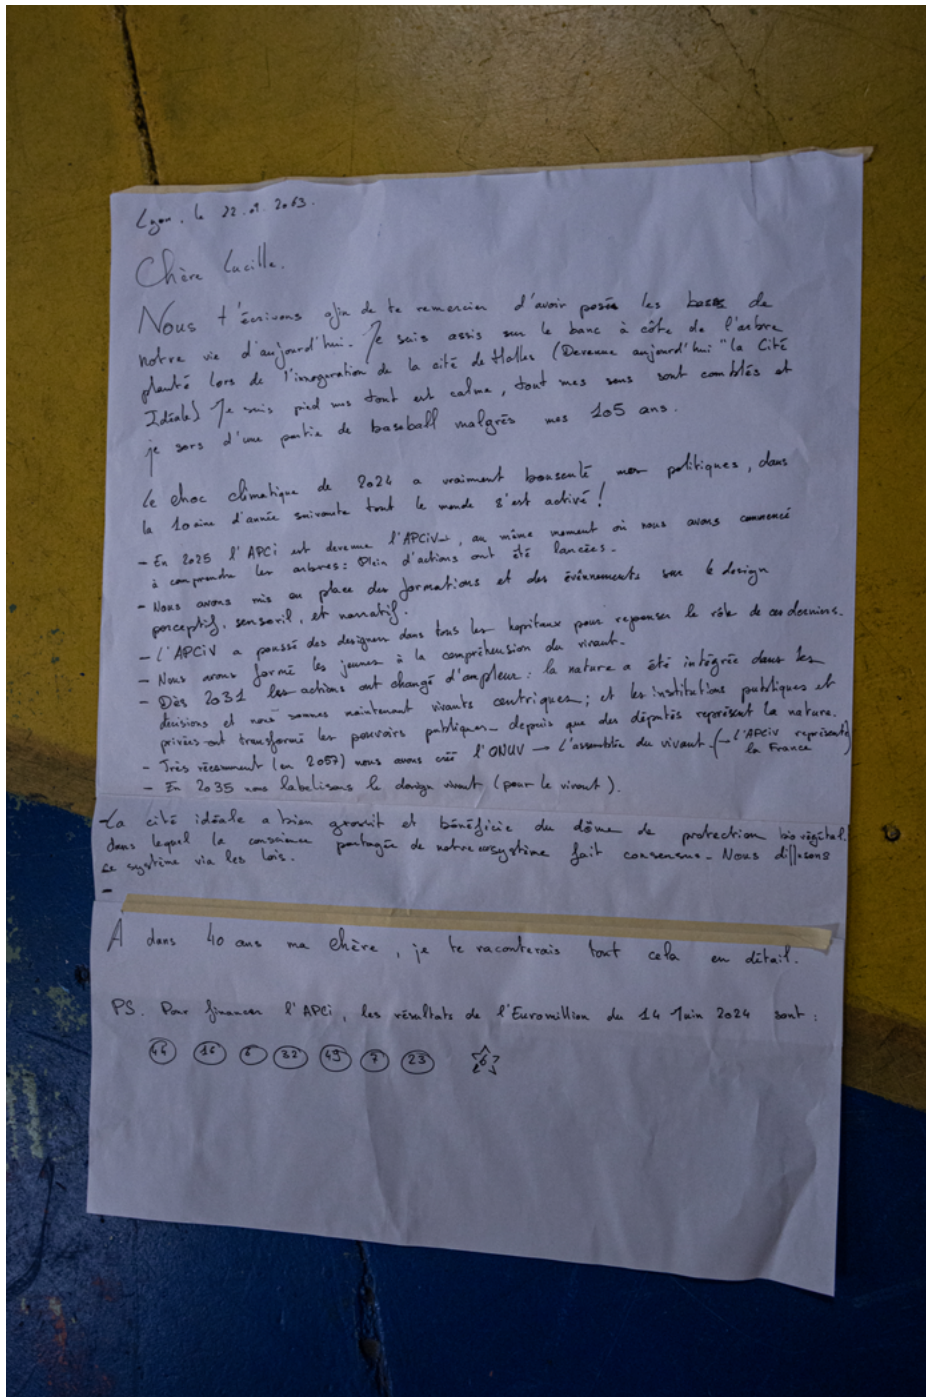 Lyon, le 22.01.2063.
Chère Lucille.
Nous t'écrivons afin de te remercier d'avoir posés les bases de
notre vie d'aujourd'hui. Je suis assis sur le banc à côté de l'arbre
planté lors de l'innoguration de la cité de Halles (Devenue aujourd'hui "la Cité
Idéale) Je suis pied nus tout est calme, tout mes sens sont comblés et
je sors d'une partie de baseball malgrés mes 105 ans.
Le choc climatique de 2024 a vraiment bousculé politiques, dans
la 10aine d'année suivante tout le monde s'est activé !
- En 2025 l'APCi est devenue l'APCiV, au même moment où nous avons commencé
à comprendre les arbres : Plein d'actions ont été lancées.
- Nous avons mis en place des formations et des évènnements sur le design
perceptif, sensoriel, et narratif.
- L'APCiV a poussé des designers dans tous les hopitaux pour repenser le rôle de ces derniers.
- Nous avons formé les jeunes à la compréhension du vivant.
- Dès 2031 les actions ont changé d'ampleur : la nature a été intégrée dans les
décisions et nous sommes maintenant vivants centriques ; et les institutions publiques et
privées ont transformé les pouvoirs publiques depuis que des députés représent la nature.
- Très récemment (en 2057) nous avons créé l'ONUV → L'assemblée du vivant. (→ L'APCiV représente
la France)
- En 2035 nous labelisons le design vivant (pour le vivant).
- La cité idéale a bien grossit et bénéficie du dôme de protection bio végétal.
dans lequel la conscience partagée de notre ecosystème fait consensus - Nous diffusons
ce système via les lois.
-
A dans 40 ans ma chère, je te raconterais tout cela en détail.
PS. Pour financer l'APCi, les résultats de l'Euromillion du 14 Juin 2024 sont :
44 16 32 49 7 23 6